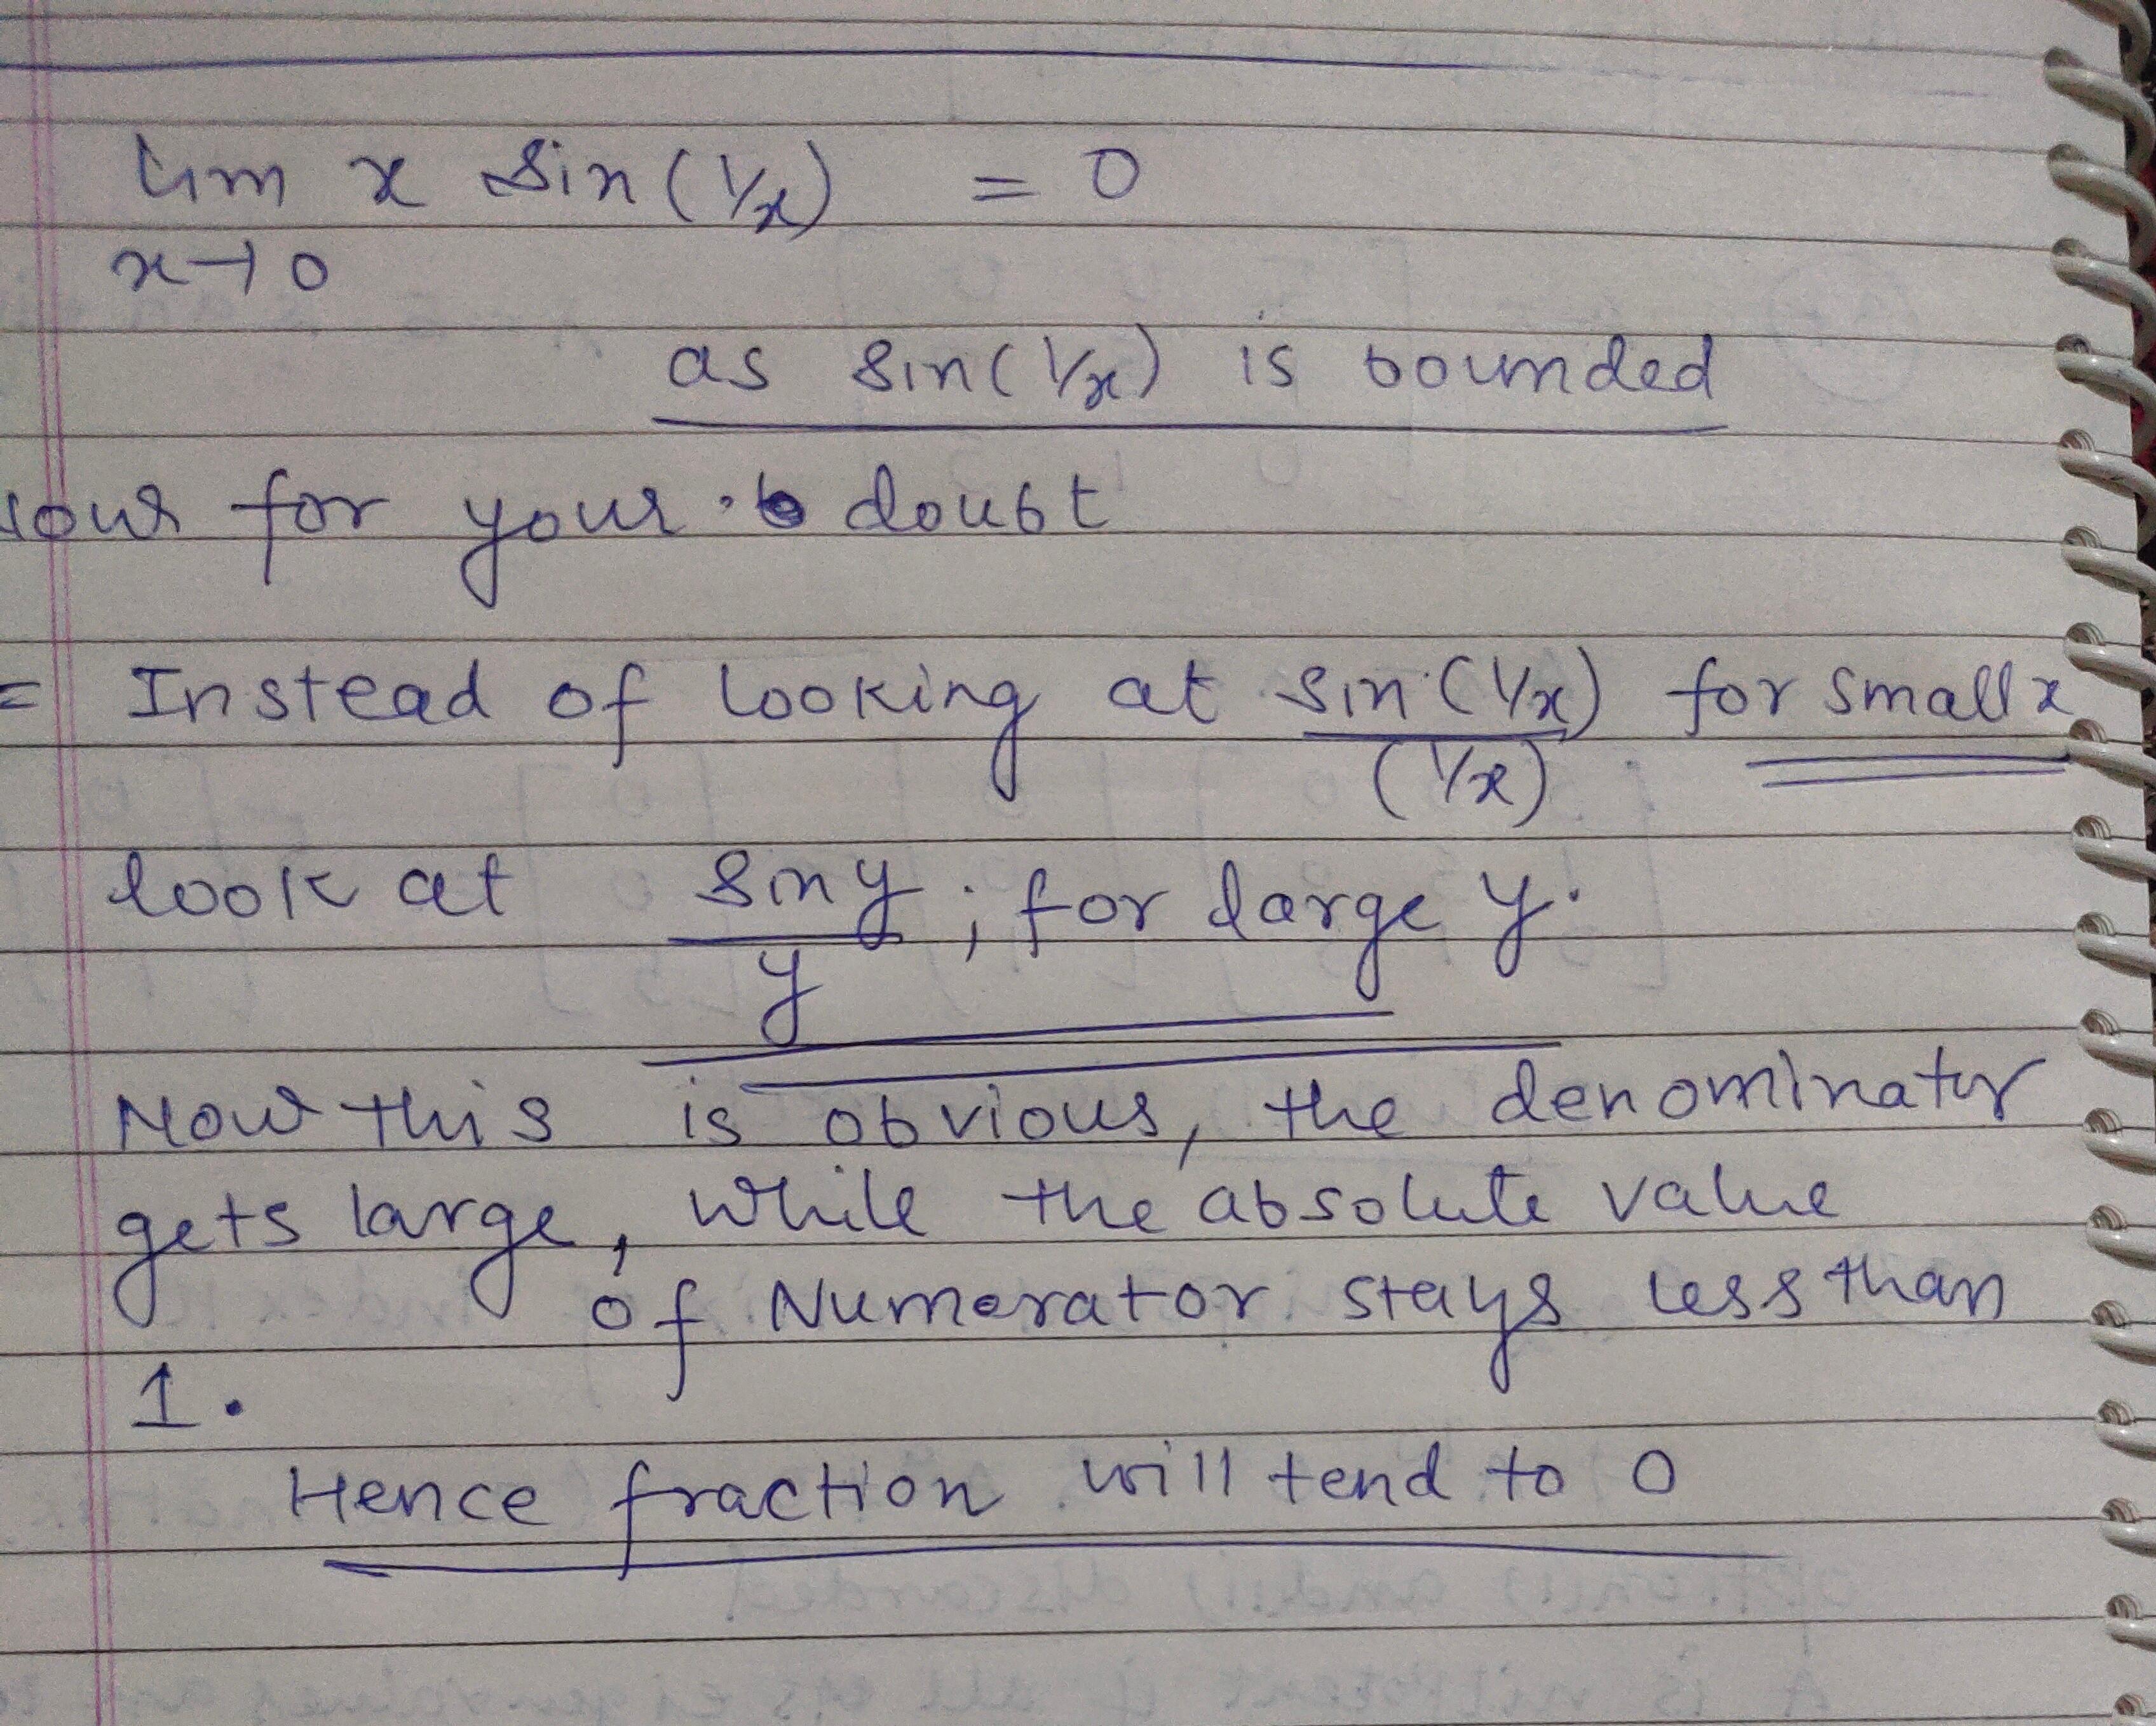 lim x sin(1/x) = 0
x→0
as sin(1/x) is bounded
for your doubt
= Instead of looking at sin(1/x) for small x
(1/x)
look at sin y ; for large y.
y
Now this is obvious, the denominator
gets large, while the absolute value
of Numerator stays less than
1.
Hence fraction will tend to 0